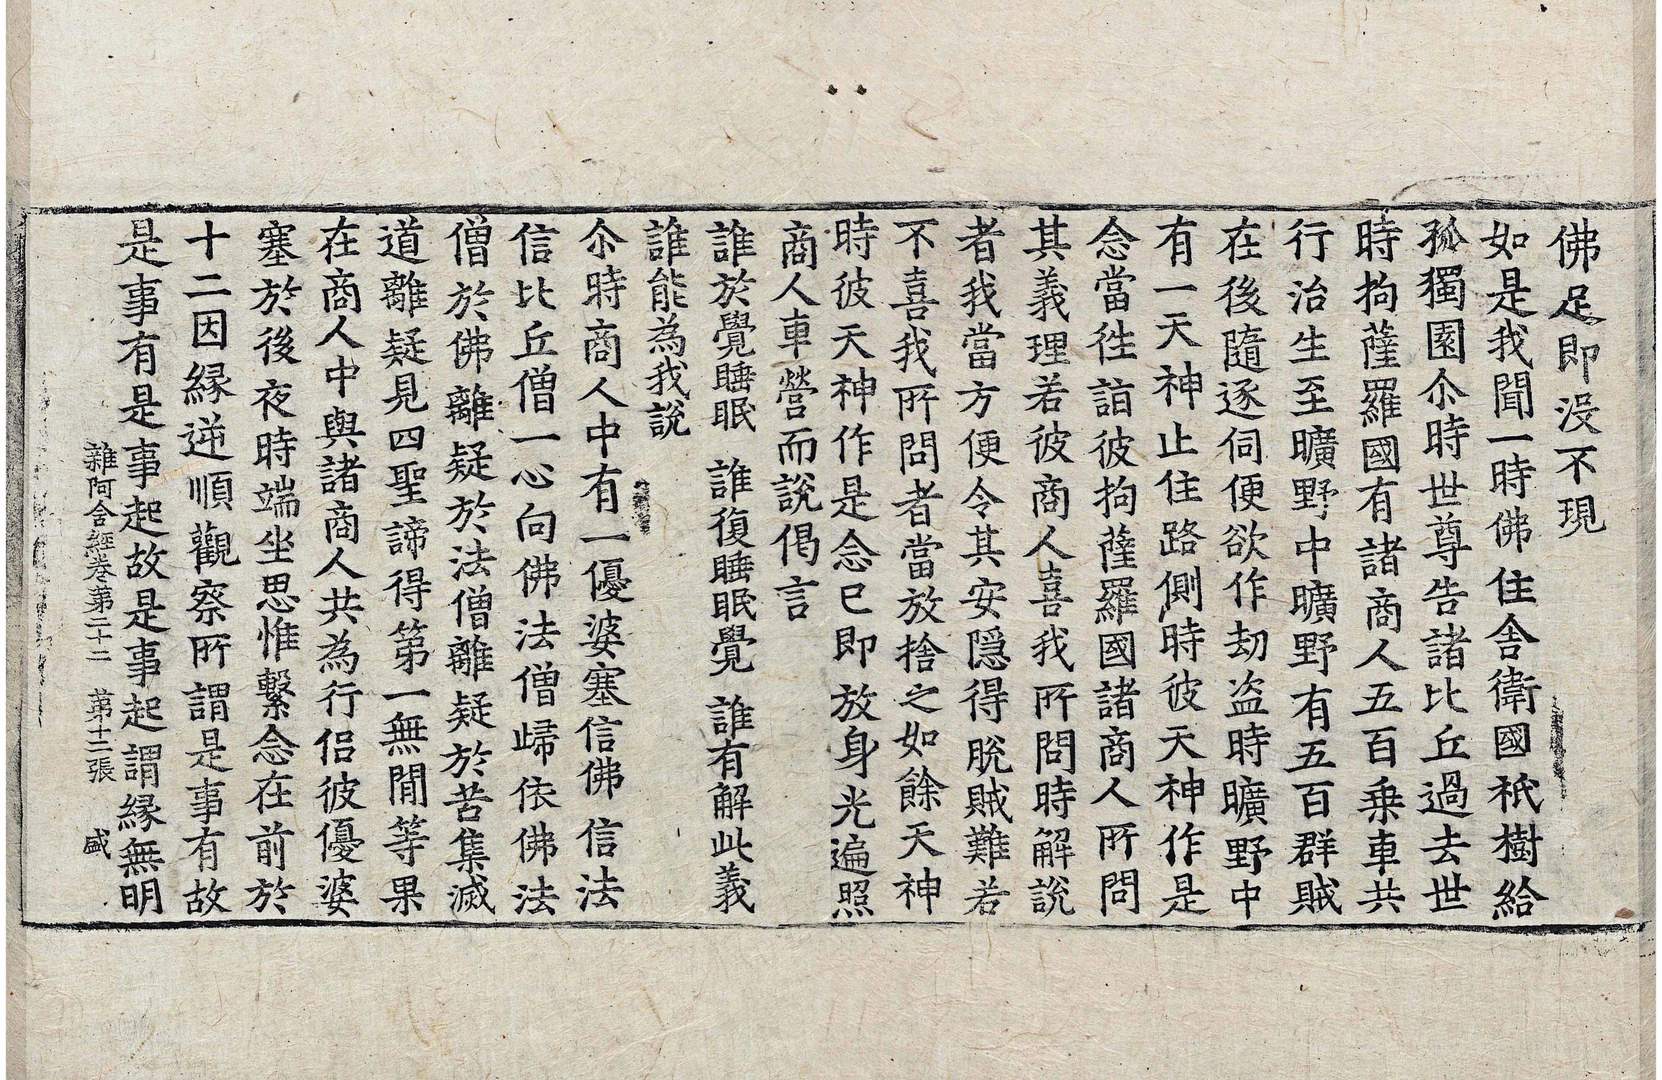 佛足即没不現
如是我聞一時佛住舎衛國祇樹給
孤獨園尒時世尊告諸比丘過去世
時拘薩羅國有諸商人五百乗車共
行治生至曠野中曠野有五百群賊
在後隨逐伺便欲作劫盗時曠野中
有一天神止住路側時彼天神作是
念當徃詣彼拘薩羅國諸商人所問
其義理若彼商人喜我所問時解說
者我當方便令其安隱得脫賊難若
不喜我所問者當放捨之如餘天神
時彼天神作是念已即放身光遍照
商人車營而說偈言
誰於覺睡眠　誰復睡眠覺　誰有解此義
誰能為我說
尒時商人中有一優婆塞信佛信法
信比丘僧一心向佛法僧歸依佛法
僧於佛離疑於法僧離疑於苦集滅
道離疑見四聖諦得第一無閒等果
在商人中與諸商人共為行侶彼優婆
塞於後夜時端坐思惟繫念在前於
十二因縁逆順觀察所謂是事有故
是事有是事起故是事起謂縁無明
雜阿含經卷第二十二　第十二張　盛